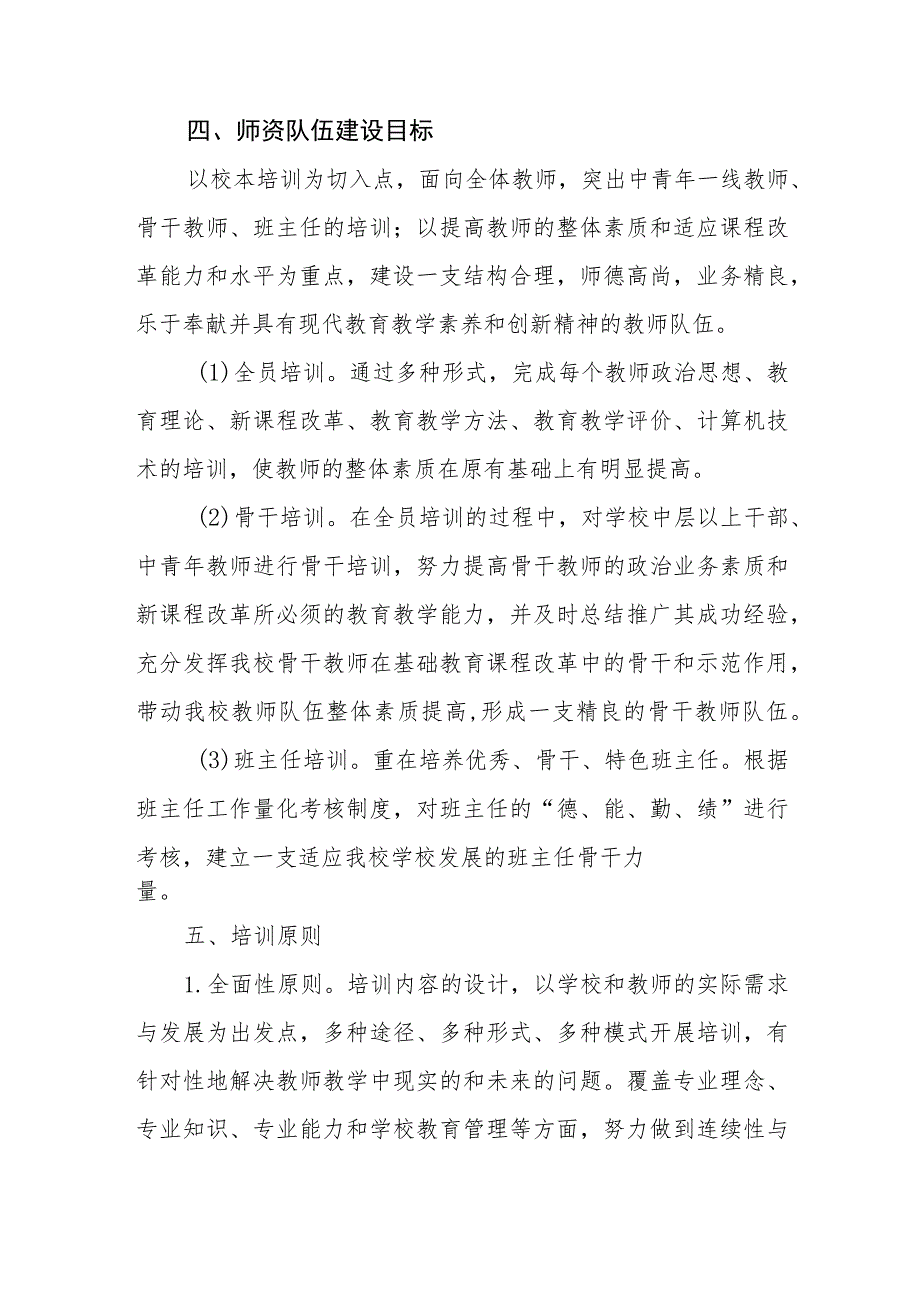 四、师资队伍建设目标
以校本培训为切入点，面向全体教师，突出中青年一线教师、
骨干教师、班主任的培训；以提高教师的整体素质和适应课程改
革能力和水平为重点，建设一支结构合理，师德高尚，业务精良，
乐于奉献并具有现代教育教学素养和创新精神的教师队伍。
(1)全员培训。通过多种形式，完成每个教师政治思想、教
育理论、新课程改革、教育教学方法、教育教学评价、计算机技
术的培训，使教师的整体素质在原有基础上有明显提高。
(2)骨干培训。在全员培训的过程中，对学校中层以上干部、
中青年教师进行骨干培训，努力提高骨干教师的政治业务素质和
新课程改革所必须的教育教学能力，并及时总结推广其成功经验，
充分发挥我校骨干教师在基础教育课程改革中的骨干和示范作用，
带动我校教师队伍整体素质提高,形成一支精良的骨干教师队伍。
(3)班主任培训。重在培养优秀、骨干、特色班主任。根据
班主任工作量化考核制度，对班主任的“德、能、勤、绩”进行
考核，建立一支适应我校学校发展的班主任骨干力
量。
五、培训原则
1.全面性原则。培训内容的设计，以学校和教师的实际需求
与发展为出发点，多种途径、多种形式、多种模式开展培训，有
针对性地解决教师教学中现实的和未来的问题。覆盖专业理念、
专业知识、专业能力和学校教育管理等方面，努力做到连续性与